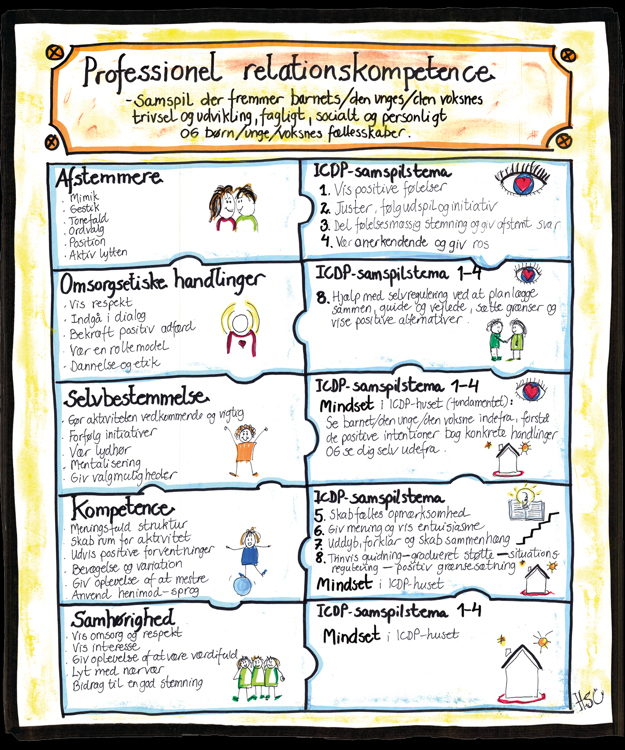 Professionel relationskompetence
- Samspil der fremmer barnets/den unges/den voksnes
trivsel og udvikling, fagligt, socialt og personligt
OG børn/unge/voksnes fællesskaber.
Afstemmere
· Mimik
· Gestik
· Tonefald
· Ordvalg
· Position
· Aktiv lytten
ICDP-samspilstema
1. Vis positive følelser
2. Juster, følg udspil og initiativ
3. Del følelsesmæssig stemning og giv afstemt svar
4. Vær anerkendende og giv ros
Omsorgsetiske handlinger
· Vis respekt
· Indgå i dialog
· Bekræft positiv adfærd
· Vær en rollemodel
· Dannelse og etik
ICDP-samspilstema 1-4
8. Hjælp med selvregulering ved at planlægge
sammen, guide og vejlede, sætte grænser og
vise positive alternativer.
Selvbestemmelse
· Gør aktiviteten vedkommende og vigtig
· Forfølg initiativer
· Vær lydhør
· Mentalisering
· Giv valgmuligheder
ICDP-samspilstema 1-4
Mindset i ICDP-huset (fundamentet):
Se barnet/den unge/den voksne indefra, forstå
de positive intentioner bag konkrete handlinger
OG se dig selv udefra.
Kompetence
· Meningsfuld struktur
· Skab rum for aktivitet
· Udvis positive forventninger
· Bevægelse og variation
· Giv oplevelse af at mestre
· Anvend henimod-sprog
ICDP-samspilstema
5. Skab fælles opmærksomhed
6. Giv mening og vis entusiasme
7. Uddyb, forklar og skab sammenhæng
8. Trinvis guidning-gradueret støtte - situations-
regulering - positiv grænsesætning
Mindset i ICDP-huset
Samhørighed
· Vis omsorg og respekt
· Vis interesse
· Giv oplevelse af at være værdifuld
· Lyt med nærvær
· Bidrag til en god stemning
ICDP-samspilstema 1-4
Mindset i ICDP-huset
HSC